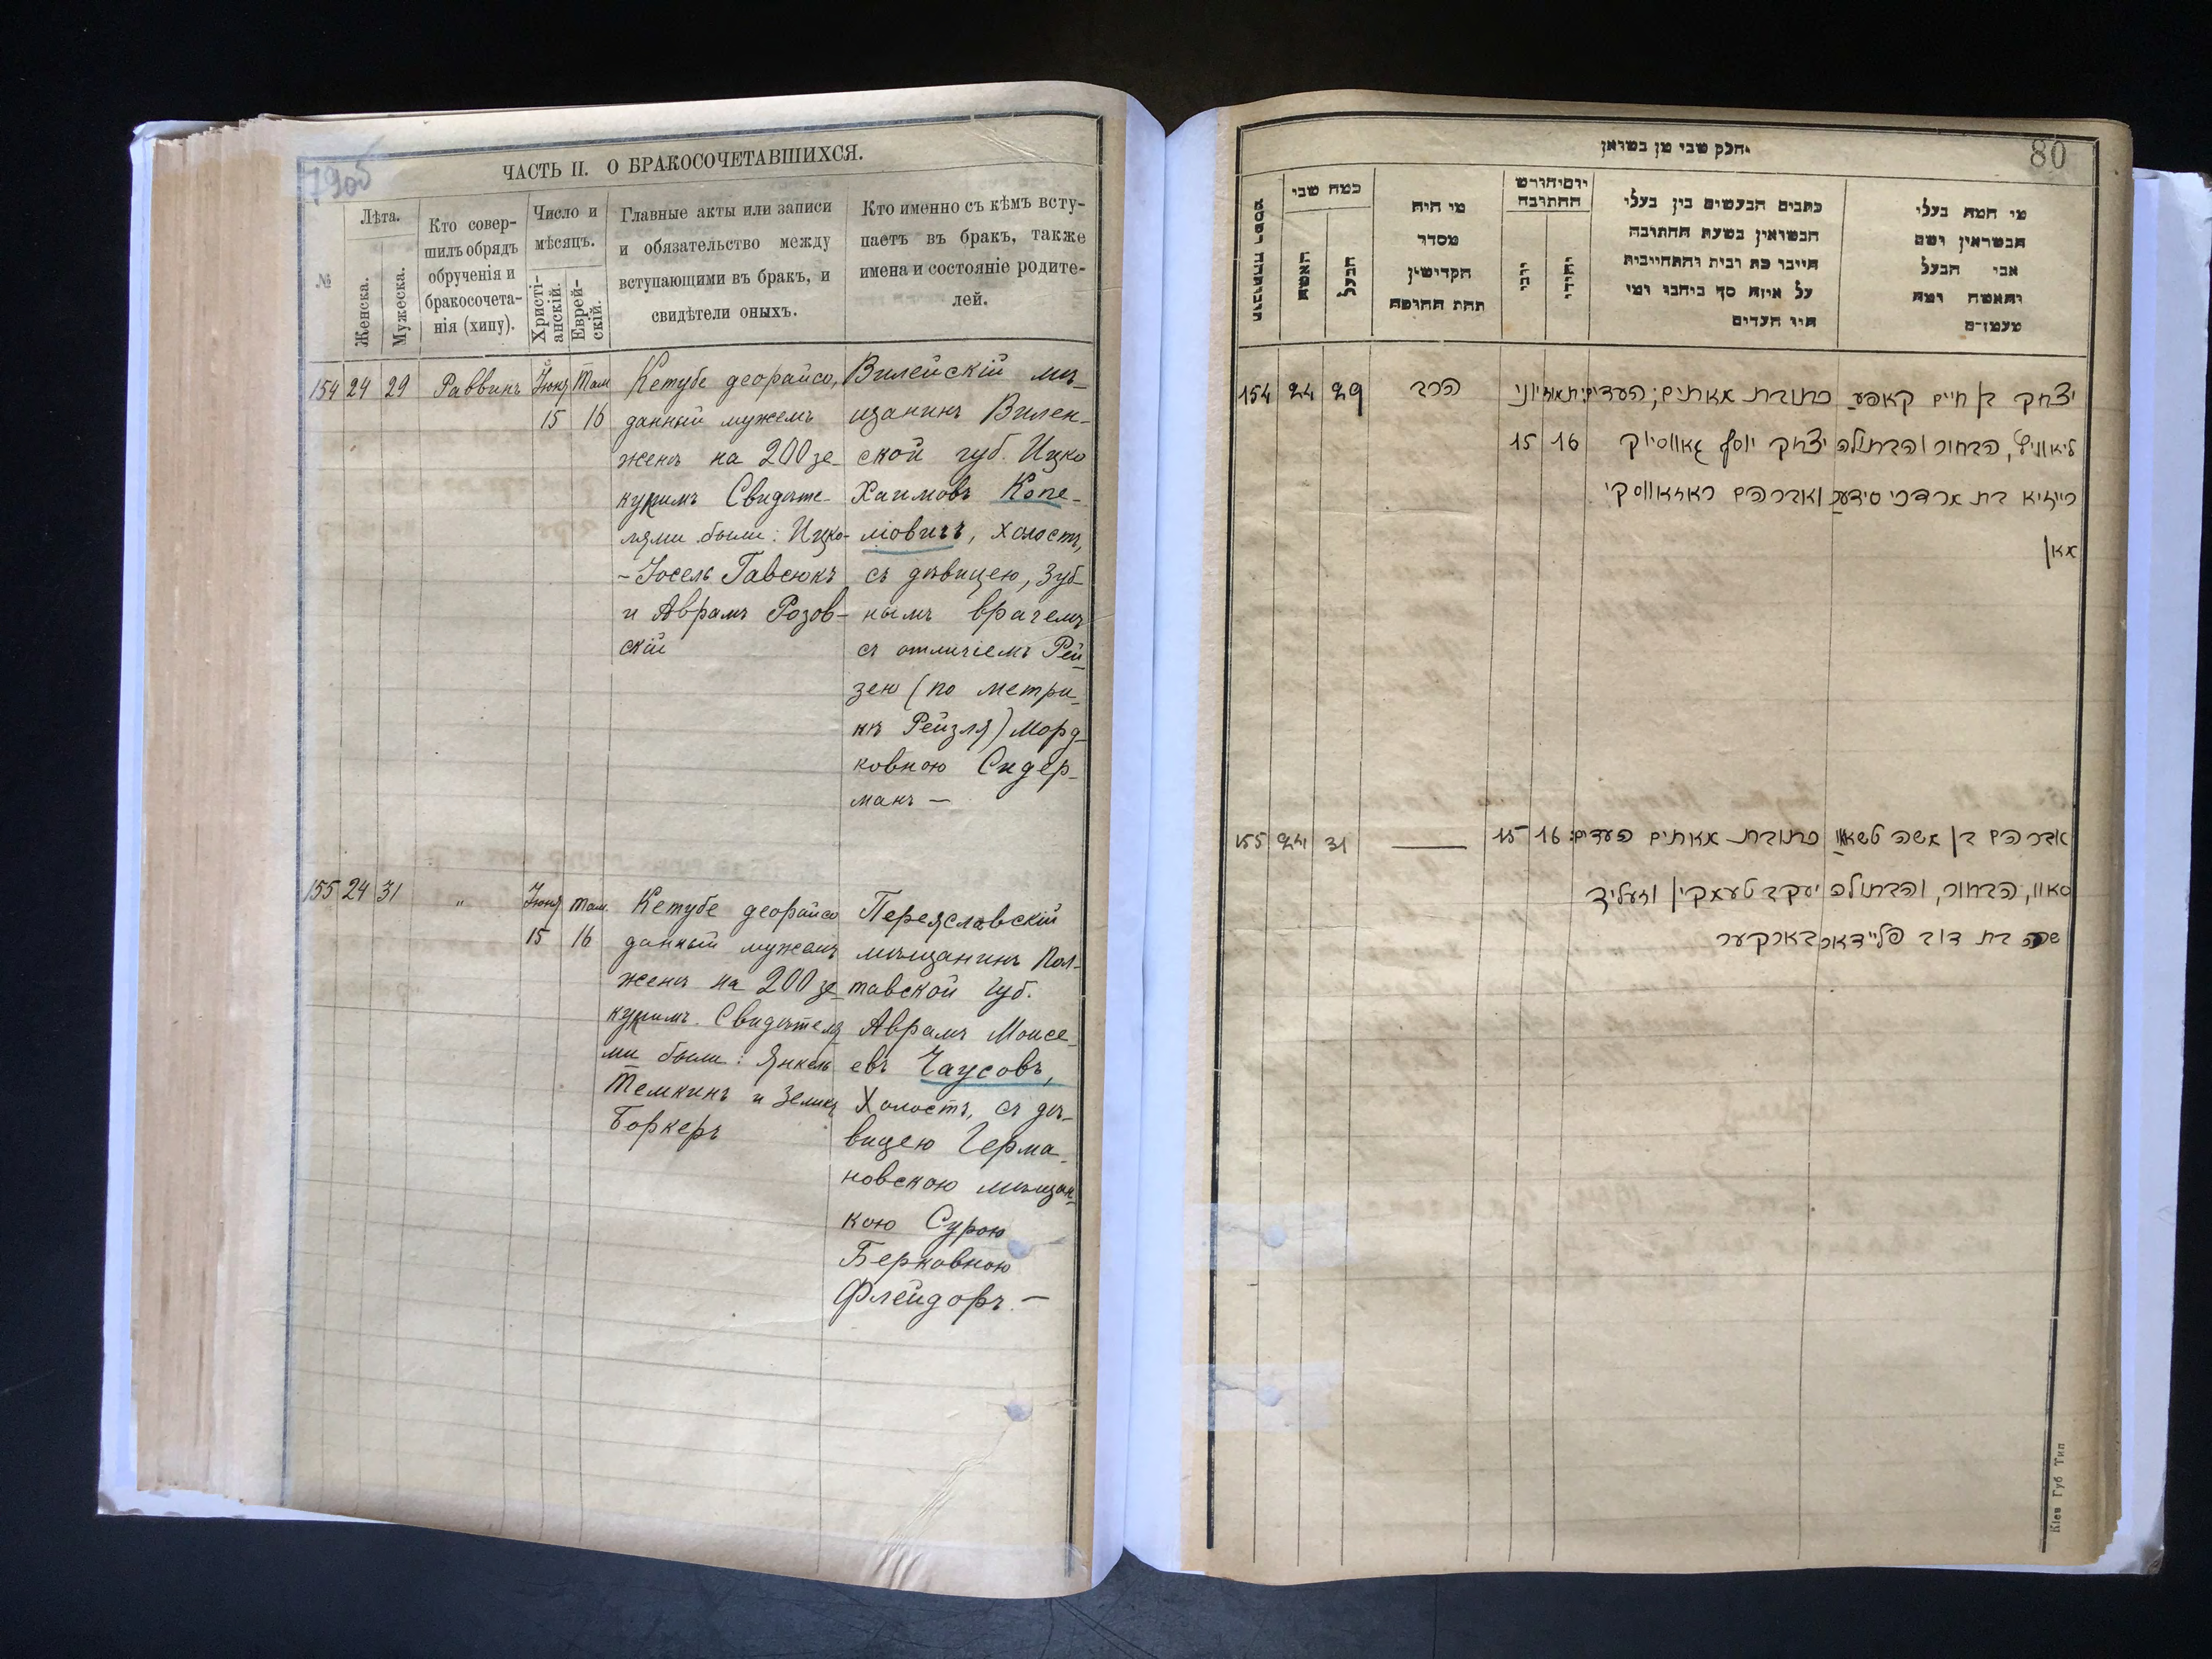 1905
ЧАСТЬ II. О БРАКОСОЧЕТАВШИХСЯ.
№
Лѣта.
Женска.
Мужеска.
Кто совер-
шилъ обрядъ
обрученія и
бракосочета-
нія (хипу).
Число и
мѣсяцъ.
Христі-
анскій.
Еврей-
скій.
Главные акты или записи
и обязательство между
вступающими въ бракъ, и
свидѣтели оныхъ.
Кто именно съ кѣмъ всту-
паетъ въ бракъ, также
имена и состояніе родите-
лей.
154 24 29 Раввинъ Іюня Там
15 16
Кетубе деорайсо,
данный мужемъ
женѣ на 200 зе-
кукимъ Свидѣте-
лями были: Ицко-
-Іосель Гавсюкъ
и Аврамъ Розов-
скій
Вилейскій мѣ-
щанинъ Вилен-
ской губ. Ицко
Хаимовъ Копе-
ліовичъ, холостъ,
съ дѣвицею, зуб-
нымъ врачемъ
съ отличіемъ Рей-
зею (по метри-
кѣ Рейзля) Морд-
ковною Сидер-
манъ —
155 24 31 " Іюня Там.
15 16
Кетубе деорайсо
данный мужемъ
женѣ на 200 зе-
кукимъ. Свидѣтеля-
ми были: Янкель
Темкинъ и Зеликъ
Боркеръ
Переяславскій
мѣщанинъ Пол-
тавской губ.
Аврамъ Моисе-
евъ Чаусовъ,
Холостъ, съ дѣ-
вицею Герма-
новскою мѣщан-
кою Сурою
Берковною
Флейдоръ. —
80
חלק שני מן נשואין
כמה שני
האשה
הבעל
מי היה
מסדר
הקדישין
תחת החופה
יום וחורש
החתונה
יהודי
כתבים הנעשים בין בעלי
הנשואין בשעת החתונה
חייבו כת רבית והתחייבות
על איזה סך ביחבו ומי
היו העדים
מי המה בעלי
הנשואין ושם
אבי הבעל
והאשה ומה
מעמדם
154 24 29 הרב
יוני
15 16
כתובת מאתים; העדים:
יצחק יוסף גאווסיוק
ואברהם ראזאווסקי
יצחק בן חיים קאפע
ליאוויץ, הבחור והבתולה
רייזיא בת מרדכי סידער
מאן
155 24 31 —— 15 16
כתובת מאתים העדים:
יעקב טעמקין וזעליק
בארקער
אברהם בן משה טשאו
סאוו, הבחור, והבתולה
שרה בת דוב פליידאר
Кіев Губ Тип